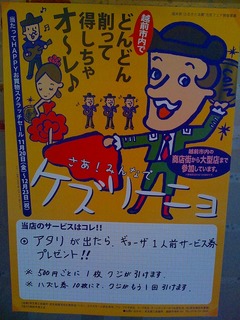 越前市内で
どんどん
削って
得しちゃ
オ〜レ♪
当たってHAPPYお買物スクラッチセール
11月20日(金)〜12月23日(祝)
越前市内の
商店街から大型店まで
参加しています。
さあ!みんなで
ケズリーニョ
当店のサービスはコレ!!
○アタリが出たら、ギョーザ1人前サービス券
プレゼント!!
※500円ごとに1枚クジが引けます。
※ハズレ券10枚にて、クジがもう1回引けます。